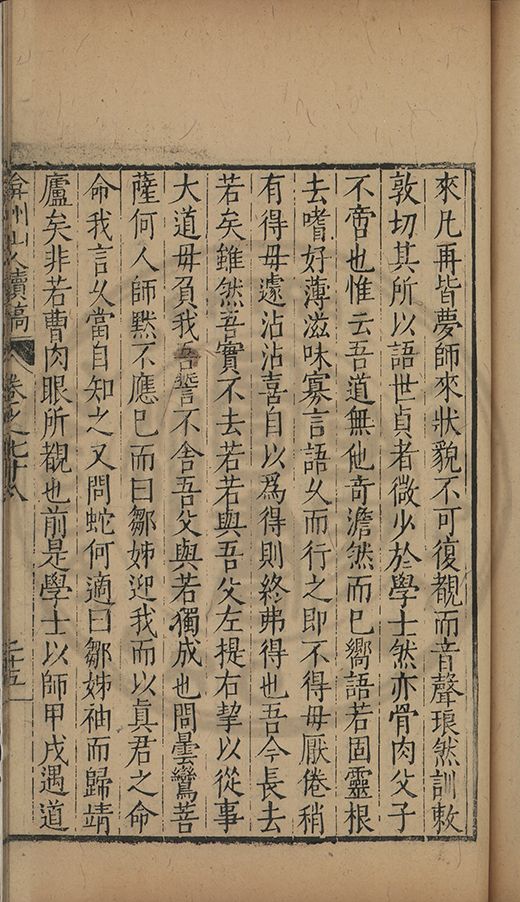 來凡再皆夢師來狀貌不可復覩而音聲琅然訓敕
敦切其所以語世貞者微少於學士然亦骨肉父子
不啻也惟云吾道無他奇澹然而已嚮語若固靈根
去嗜好薄滋味寡言語久而行之即不得毋厭倦稍
有得毋遽沾沾喜自以爲得則終弗得也吾今長去
若矣雖然吾實不去若若與吾父左提右挈以從事
大道毋負我吾誓不舍吾父與若獨成也問曇鸞菩
薩何人師默不應已而曰鄒姊迎我而以真君之命
命我言久當自知之又問蛇何適曰鄒姊袖而歸靖
廬矣非若曹肉眼所覩也前是學士以師甲戌遇道
弇州山人續稿 卷之七十八 二十五